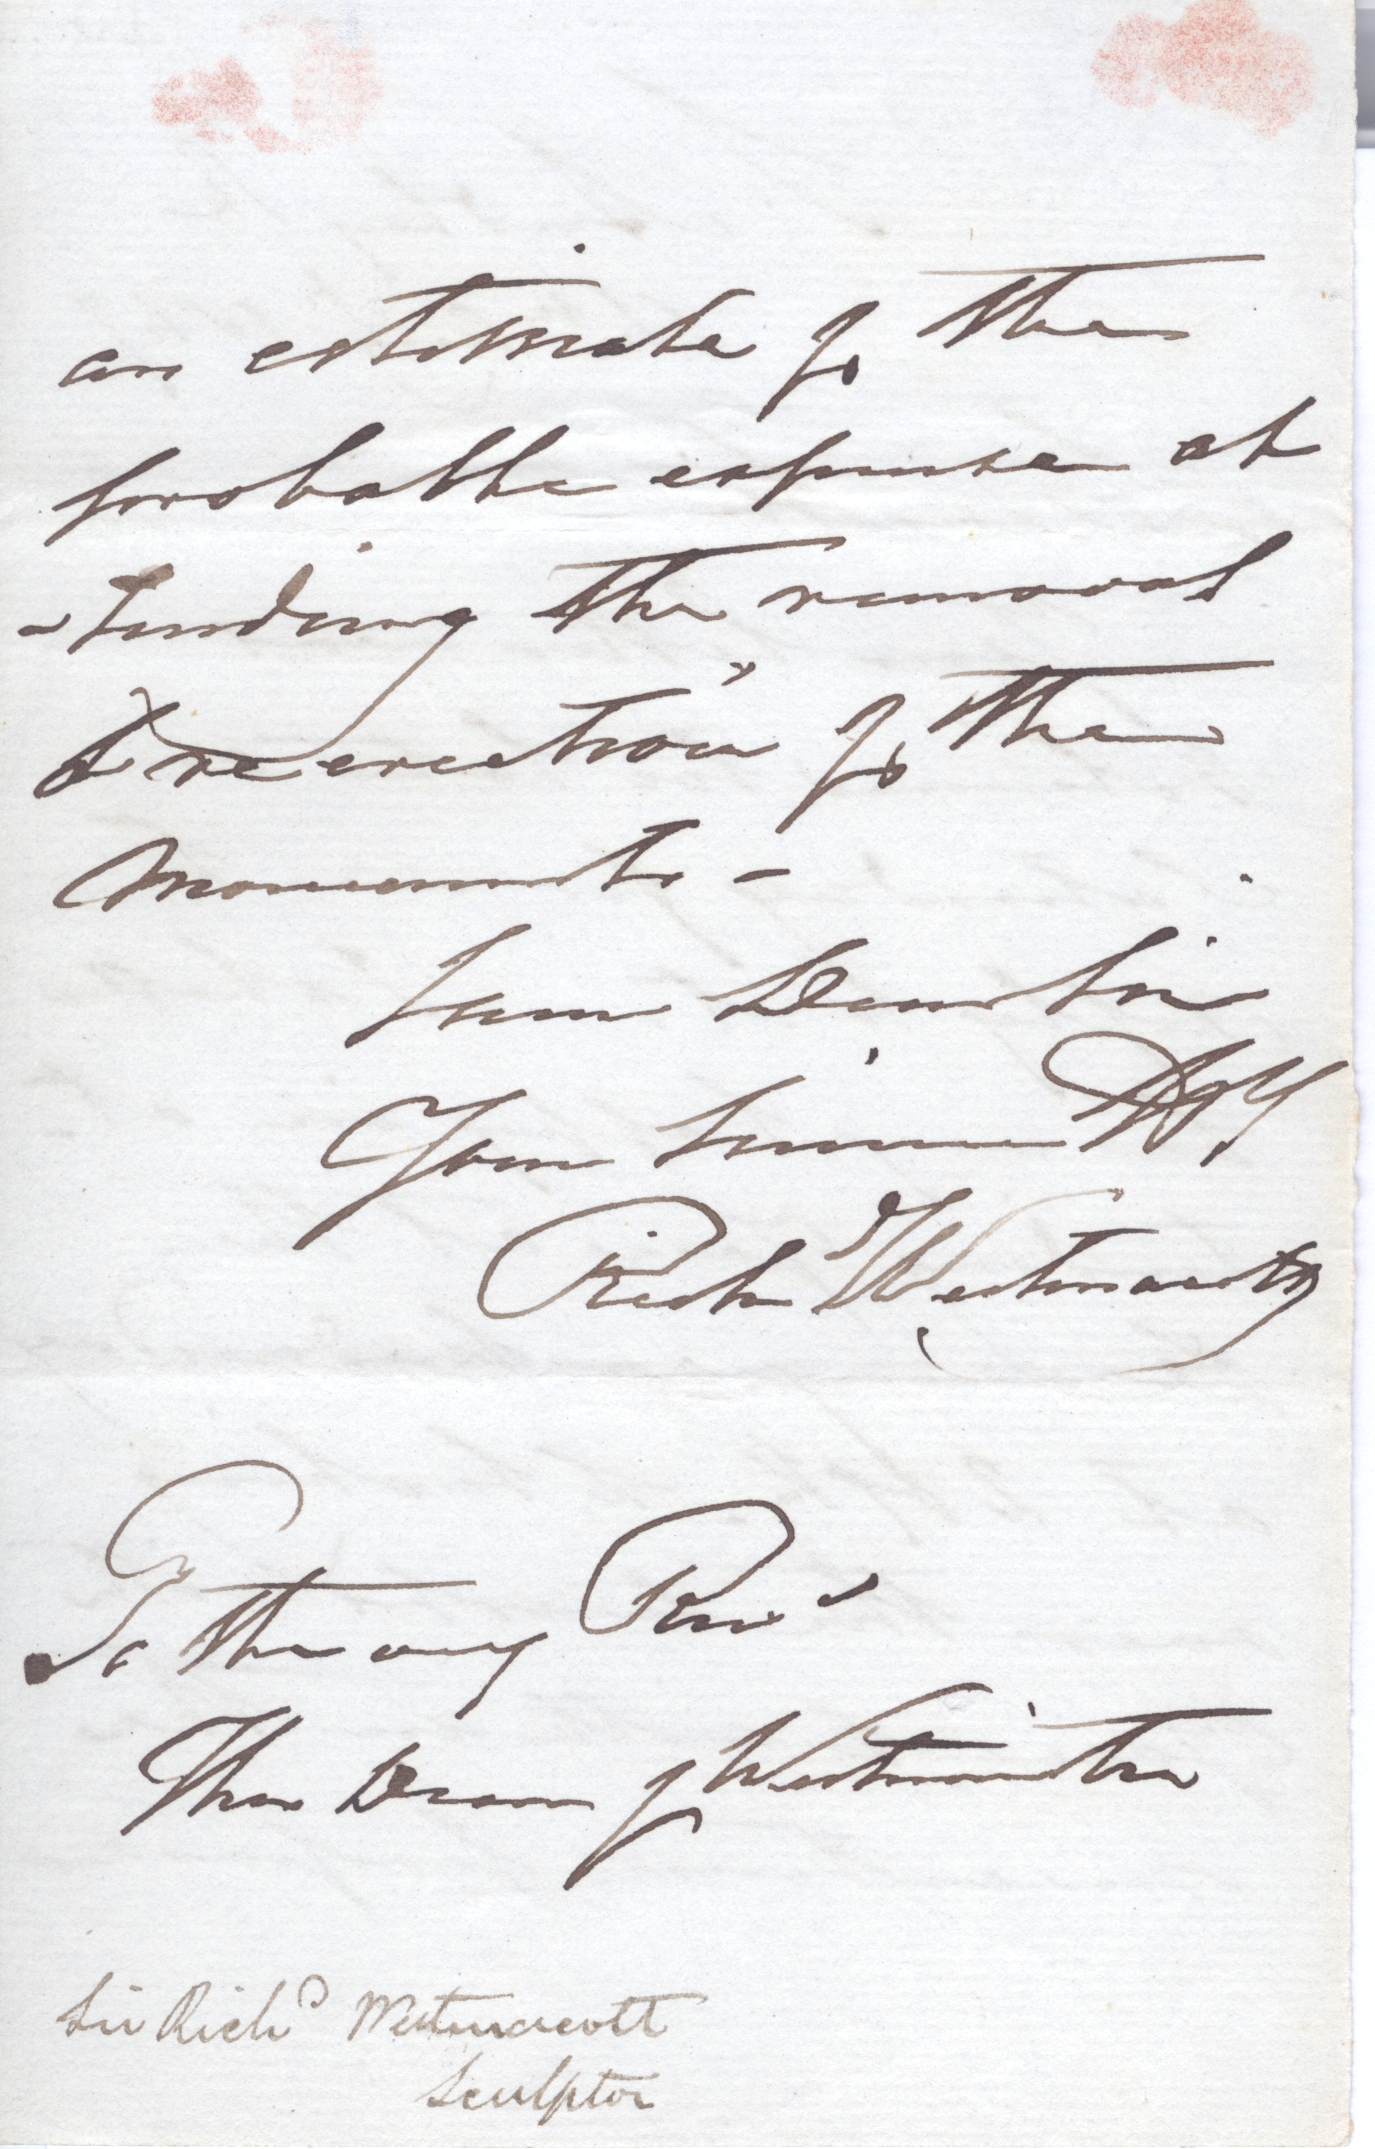 an estimate of the
probable expense at
-tending the removal
& reerection of the
Monuments -
I am Dear Sir
Your Sincere
Richd Westmacott
To the very Revd
The Dean of Westminster
Sir Richd Westmacott
Sculptor